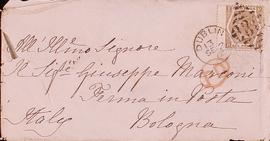 DUBLIN
All' Illmo Signore
Il Sigre Giuseppe Marconi
Ferma in Posta
Bologna
Italy